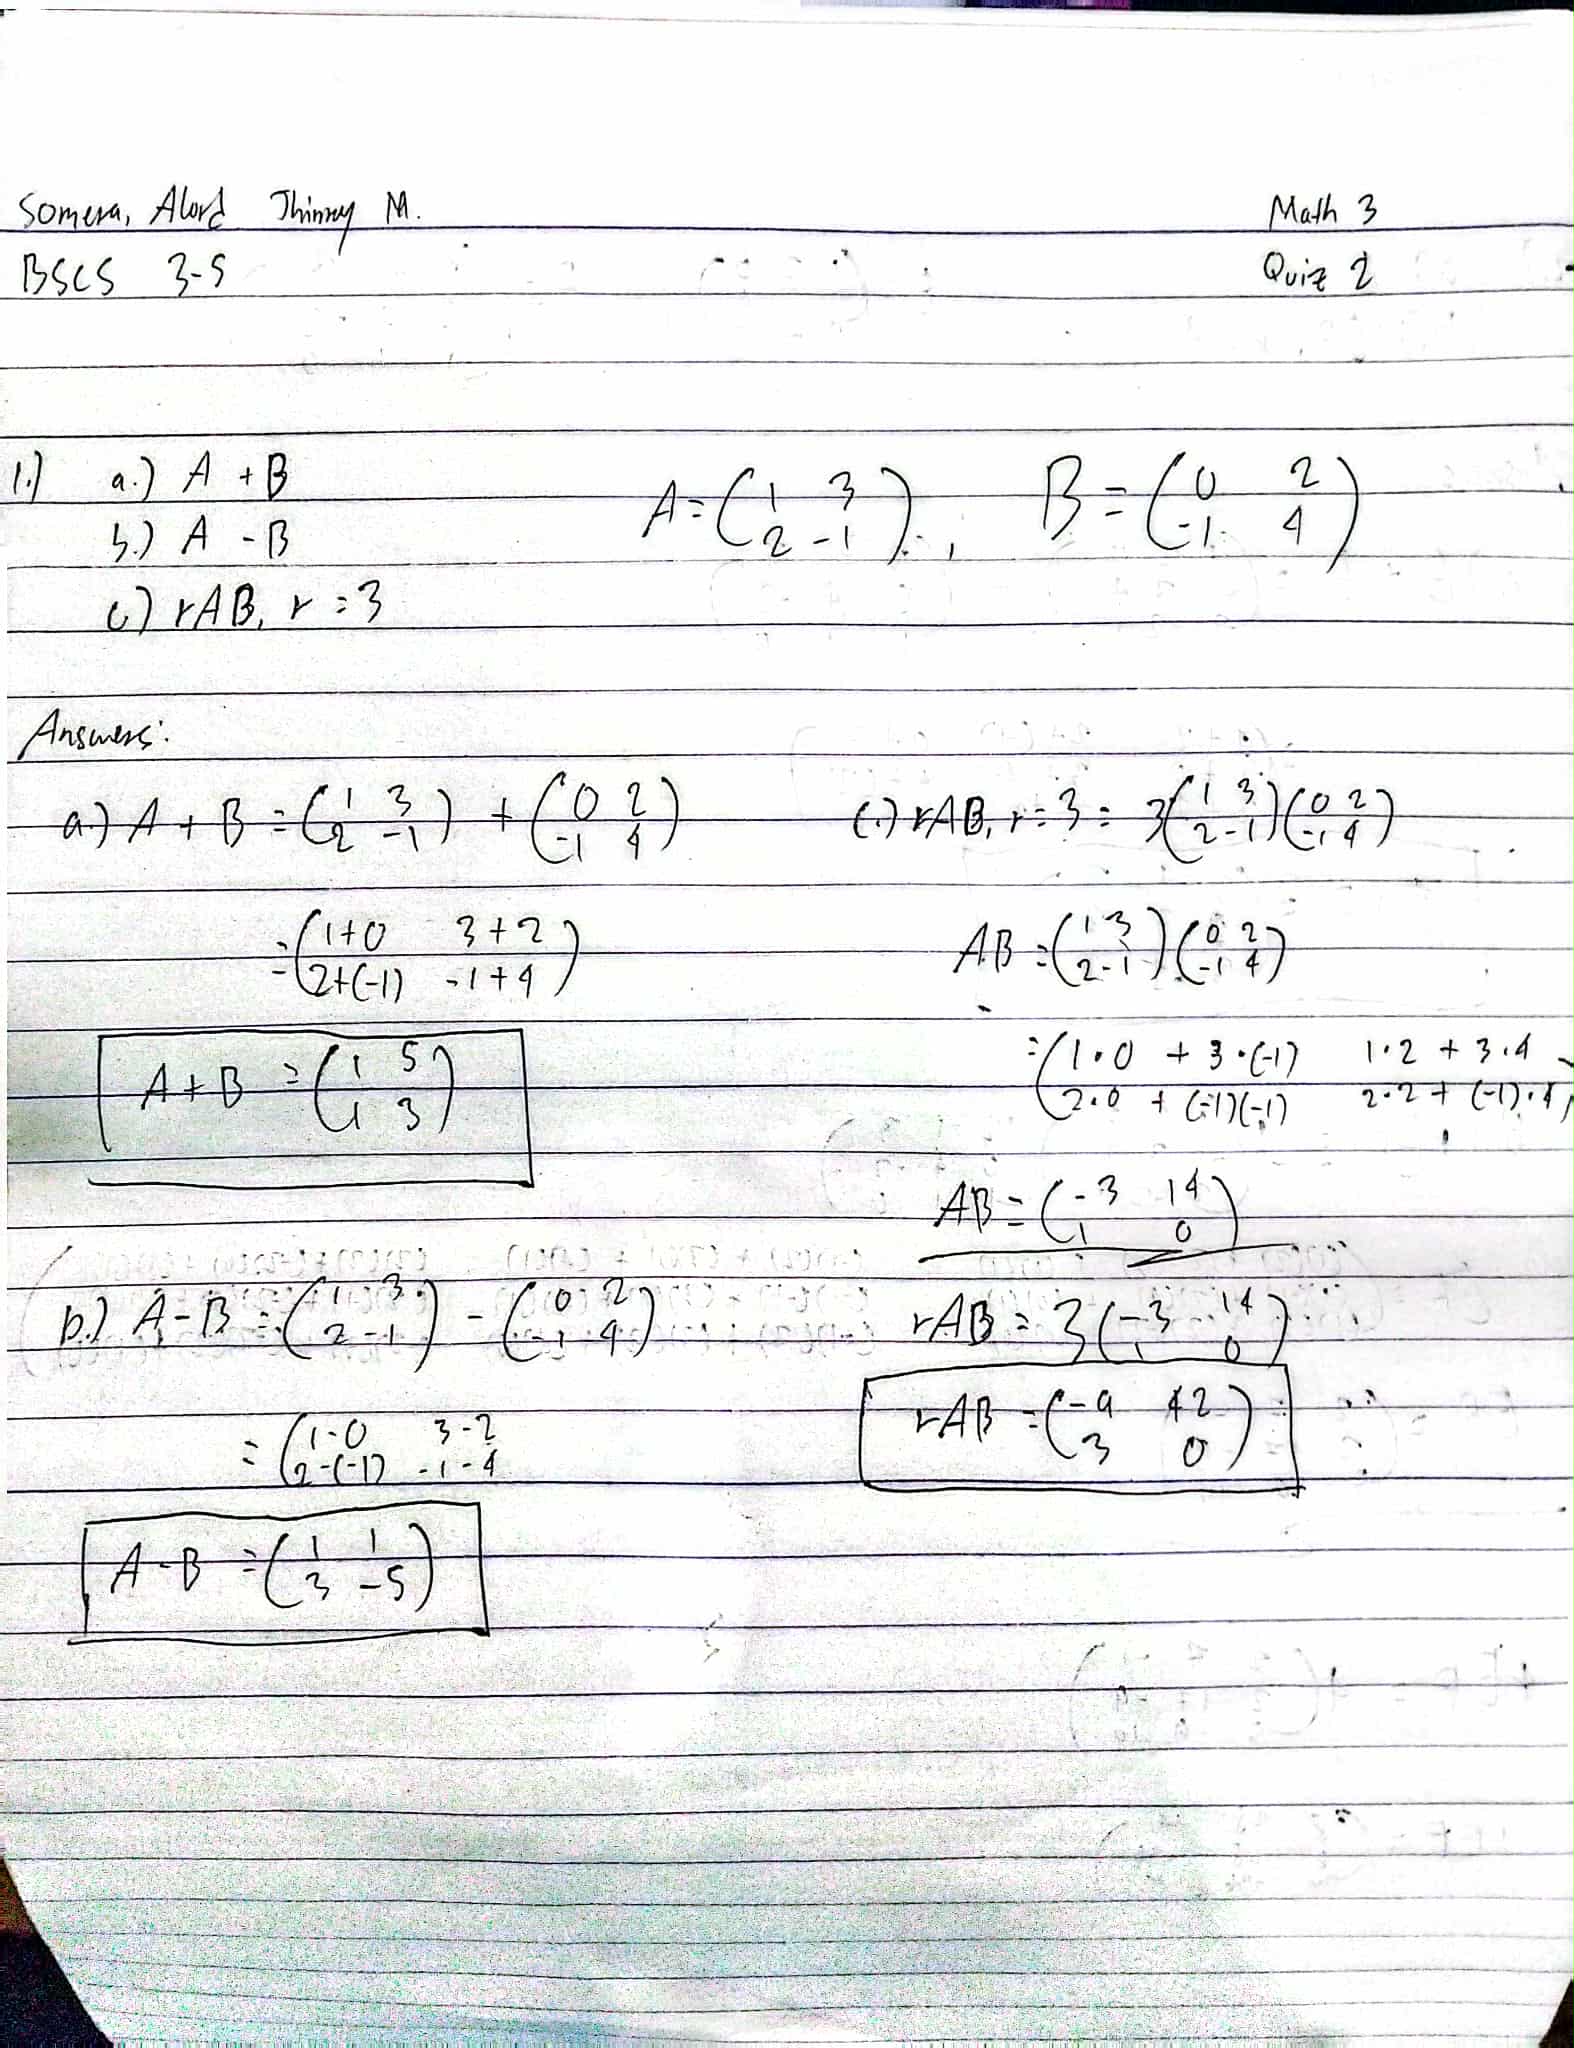 Somera, Alord Jhinney M. Math 3
BSCS 3-5 Quiz 2
1.) a.) A + B
b.) A - B
c.) rAB, r = 3
A = ( 1 3 ), B = ( 0 2 )
2 -1 -1 4
Answers:
a.) A + B = ( 1 3 ) + ( 0 2 )
2 -1 -1 4
= ( 1+0 3+2 )
2+(-1) -1+4
A + B = ( 1 5 )
1 3
b.) A - B = ( 1 3 ) - ( 0 2 )
2 -1 -1 4
= ( 1-0 3-2
2-(-1) -1-4
A - B = ( 1 1 )
3 -5
c.) rAB, r = 3 = 3( 1 3 )( 0 2 )
2 -1 -1 4
AB = ( 1 3 )( 0 2 )
2 -1 -1 4
= ( 1·0 + 3·(-1) 1·2 + 3·4 )
2·0 + (-1)(-1) 2·2 + (-1)·4
AB = ( -3 14 )
1 0
rAB = 3( -3 14 )
1 0
rAB = ( -9 42 )
3 0